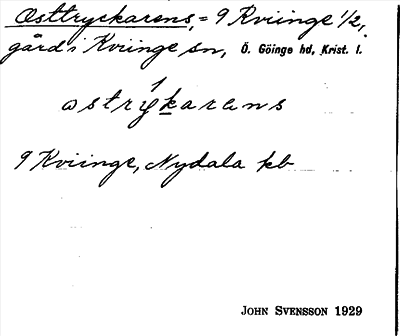 Osttryckarens, = 9 Kviinge 1/2,
gård i Kviinge sn, Ö. Göinge hd, Krist. l.
ostrykarens
9 Kviinge, Nydala kb
JOHN SVENSSON 1929